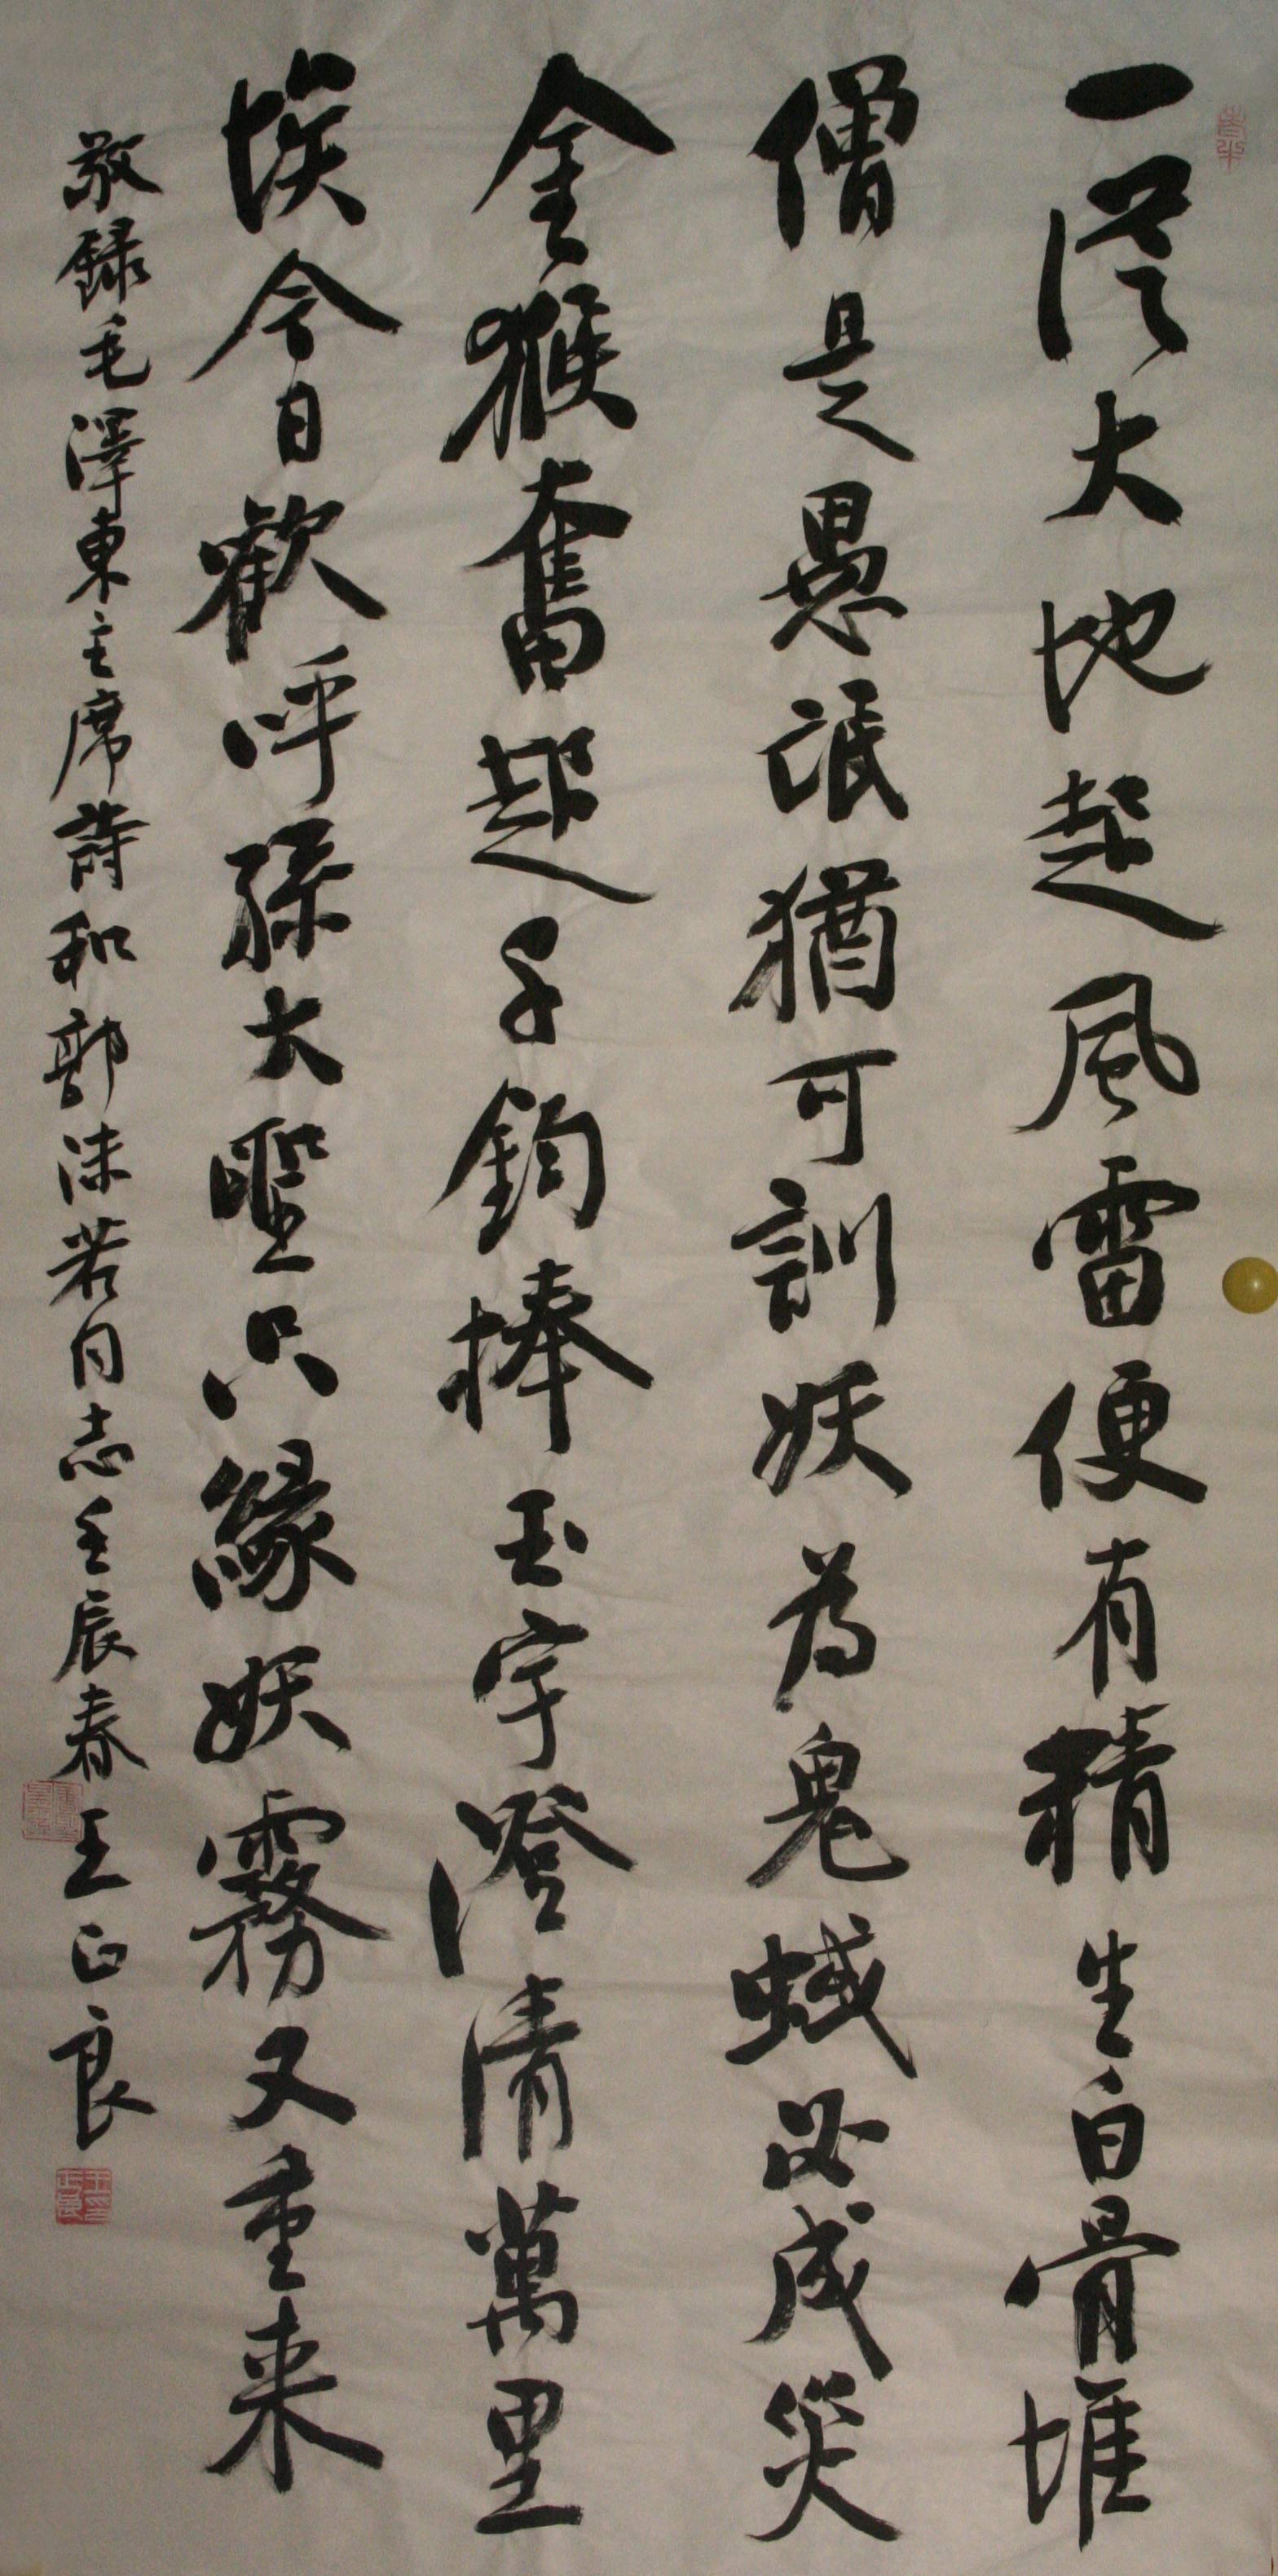 一從大地起風雷便有精生白骨堆
僧是愚氓猶可訓妖為鬼蜮必成災
金猴奮起千鈞棒玉宇澄清萬里
埃今日歡呼孫大聖只緣妖霧又重来
敬録毛澤東主席詩和郭沫若同志壬辰春王正良